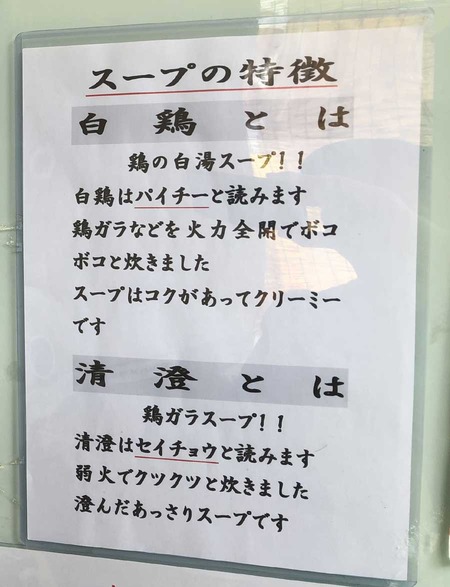 スープの特徴
白鶏とは
鶏の白湯スープ！！
白鶏はパイチーと読みます
鶏ガラなどを火力全開でボコ
ボコと炊きました
スープはコクがあってクリーミー
です
清澄とは
鶏ガラスープ！！
清澄はセイチョウと読みます
弱火でクツクツと炊きました
澄んだあっさりスープです